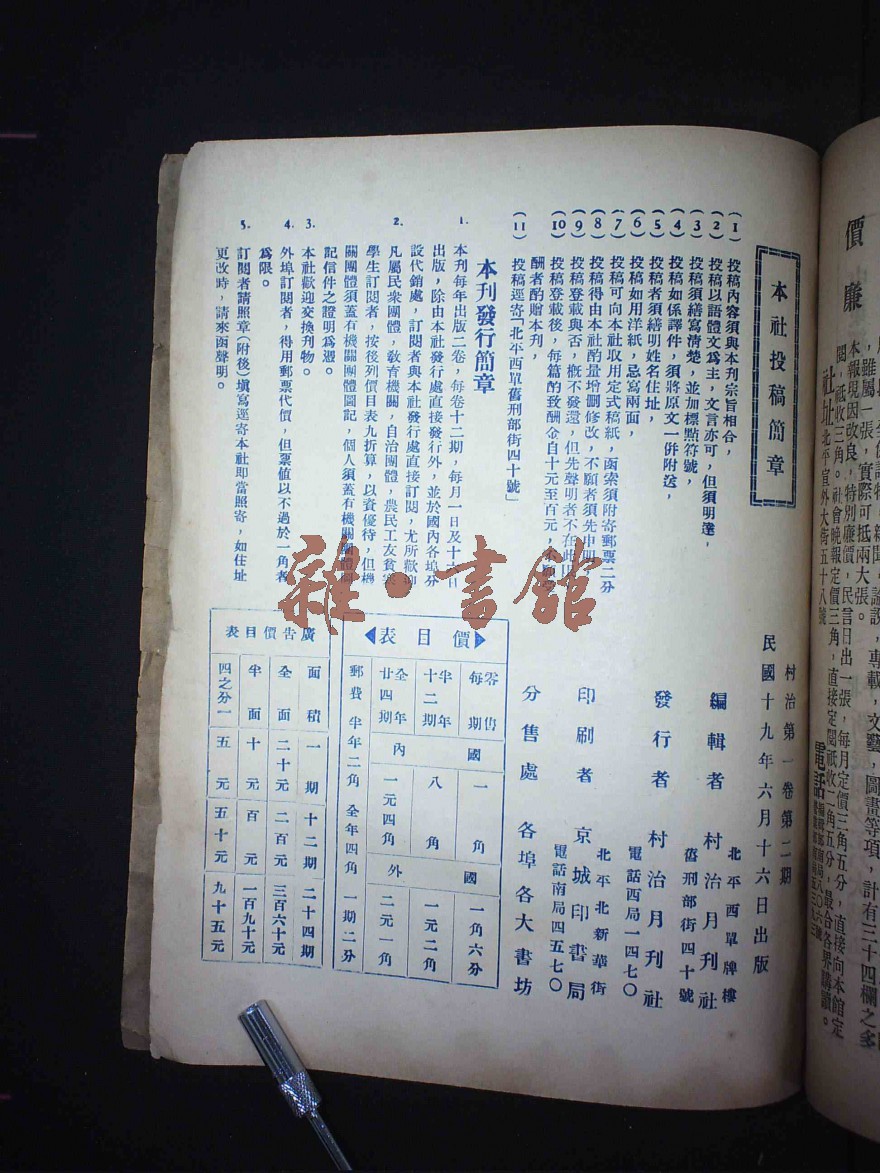 本社投稿簡章
(1) 投稿內容須與本刊宗旨相合，
(2) 投稿以語體文爲主，文言亦可，但須明達，
(3) 投稿須繕寫清楚，並加標點符號，
(4) 投稿如係譯件，須將原文一併附送，
(5) 投稿者須繕明姓名住址，
(6) 投稿如用洋紙，忌寫兩面，
(7) 投稿可向本社取用定式稿紙，函索須附寄郵票二分
(8) 投稿得由本社酌量增删修改，不願者須先申明
(9) 投稿登載與否，槪不發還，但先聲明者不在此
(10) 投稿登載後，每篇酌致酬金自十元至百元，
酬者酌贈本刊，
(11) 投稿逕寄「北平西單舊刑部街四十號」
本刊發行簡章
1. 本刊每年出版二卷，每卷十二期，每月一日及十六日
出版，除由本社發行處直接發行外，並於國內各埠分
設代銷處，訂閱者與本社發行處直接訂閱，尤所歡迎
2. 凡屬民衆團體，敎育機關，自治團體，農民工友貧寒
學生訂閱者，按後列價目表九折算，以資優待，但機
關團體須蓋有機關團體圖記，個人須蓋有機關團體圖
記信件之證明爲憑。
3. 本社歡迎交換刊物。
4. 外埠訂閱者，得用郵票代價，但票值以不過於一角者
爲限。
5. 訂閱者請照章（附後）塡寫逕寄本社即當照寄，如住址
更改時，請來函聲明。
村治第一卷第二期
民國十九年六月十六日出版
編輯者 村治月刊社
北平西單牌樓
舊刑部街四十號
發行者 村治月刊社
電話西局一四七〇
印刷者 京城印書局
北平北新華街
電話南局四五七〇
分售處 各埠各大書坊
價目表
零售每期 國內 一角 國外 一角六分
半年十二期 八角 一元二角
全年廿四期 一元四角 二元一角
郵費 半年二角 全年四角 一期二分
廣告價目表
面積 一期 十二期 二十四期
全面 二十元 二百元 三百六十元
半面 十元 百元 一百九十元
四之分一 五元 五十元 九十五元
雜·書館
價廉
，雖屬一張，實際可抵兩大張。
本報現因改良，特別廉價，民言日出一張，每月定價三角五分，直接向本館定
閱，祇收三角。社會晚報定價三角，直接定閱祇收二角五分，最合各界購讀。
社址 北平宣外大街五十八號
電話